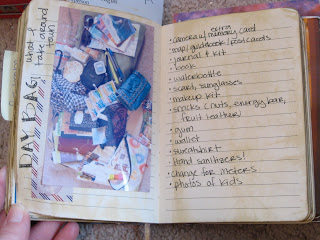 DAY BAG!
what I
take around
town
extra
• camera w/ memory card
• map/guidebook/postcards
• journal + kit
• book
• waterbottle
• scarf, sunglasses
• makeup kit
• snacks (nuts, energy bar,
fruit leather)
• gum
• wallet
• sweatshirt
• Hand sanitizers!
• change for meters
• photos of kids